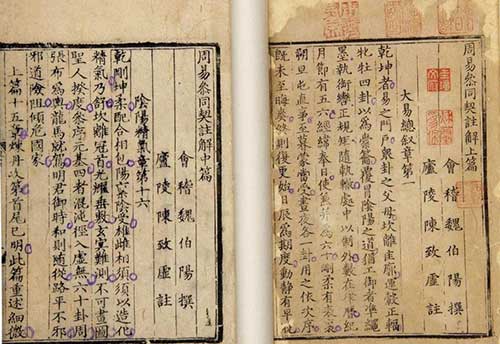 周易叅同契註解上篇
會稽魏伯陽撰
廬陵陳致虛註
大易總叙章第一
乾坤者易之門戶衆卦之父母坎離匡廓運轂正軸
牝牡四卦以為橐籥覆冒陰陽之道猶工御者準繩
墨執銜轡正規矩隨軌轍處中以制外數在律曆紀
月節有五六經緯奉日使兼并為六十剛柔有表裏
朔旦屯直事至暮蒙當受晝夜各一卦用之依次序
既未至晦爽終則復更始日辰為期度動靜有早晚
周易叅同契註解中篇
會稽魏伯陽撰
廬陵陳致虛註
陰陽精氣章第十六
乾剛坤柔配合相包陽稟陰受雄雌相須須以造化
精氣乃舒坎離冠首光耀垂敷玄冥難測不可畫圖
聖人揆度叅序元基四者混沌徑入虛無六十卦周
張布為輿龍馬就駕明君御時和則隨從路平不邪
邪道險阻傾危國家
上篇十五章煉丹次第首尾已明此篇重述細微